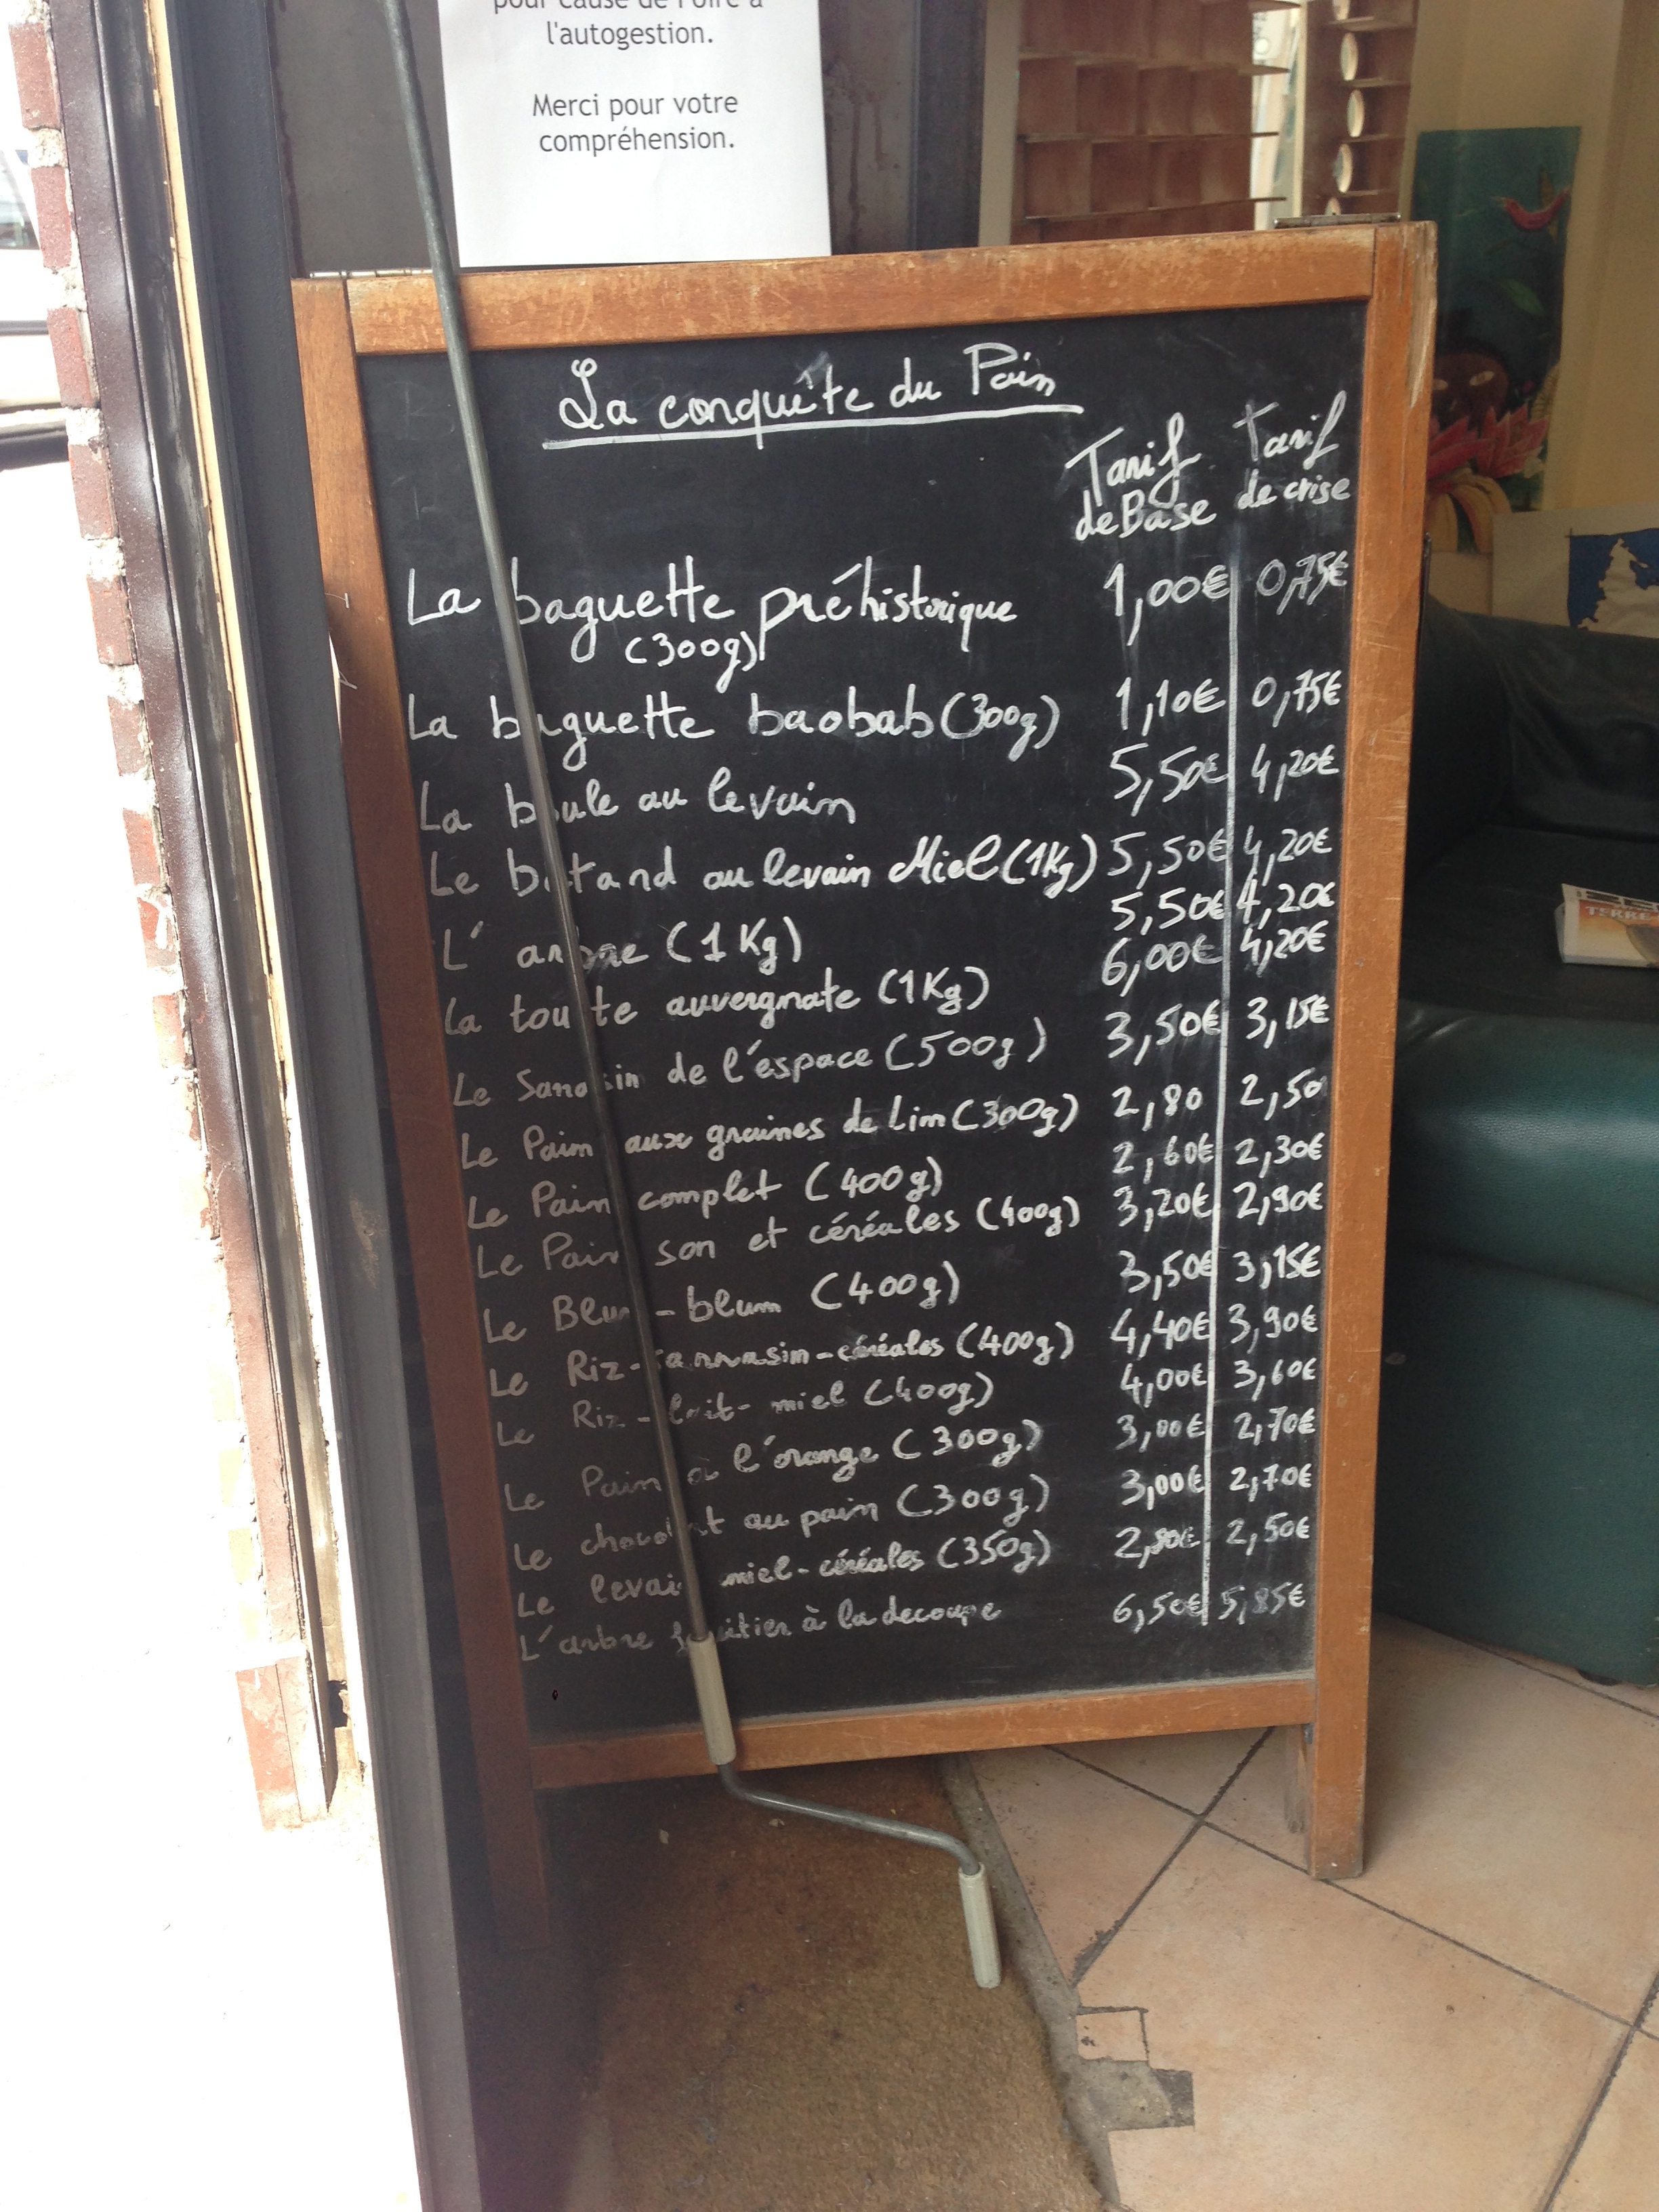 l'autogestion.
Merci pour votre
compréhension.
La conquête du Pain
Tarif Tarif
de Base de crise
La baguette préhistorique 1,00€ 0,75€
(300g)
La baguette baobab (300g) 1,10€ 0,75€
La boule au levain 5,50€ 4,20€
Le batard au levain Miel (1Kg) 5,50€ 4,20€
L'arbre (1Kg) 5,50€ 4,20€
La tourte auvergnate (1Kg) 6,00€ 4,20€
Le Sarrasin de l'espace (500g) 3,50€ 3,15€
Le Pain aux graines de Lin (300g) 2,80 2,50
Le Pain complet (400g) 2,60€ 2,30€
Le Pain son et céréales (400g) 3,20€ 2,90€
Le Blum-blum (400g) 3,50€ 3,15€
Le Riz-sarrasin-céréales (400g) 4,40€ 3,90€
Le Riz-lait-miel (400g) 4,00€ 3,60€
Le Pain à l'orange (300g) 3,00€ 2,70€
Le chocolat au pain (300g) 3,00€ 2,70€
Le levain miel-céréales (350g) 2,80€ 2,50€
L'arbre fruitier à la decoupe 6,50€ 5,85€
TERRE